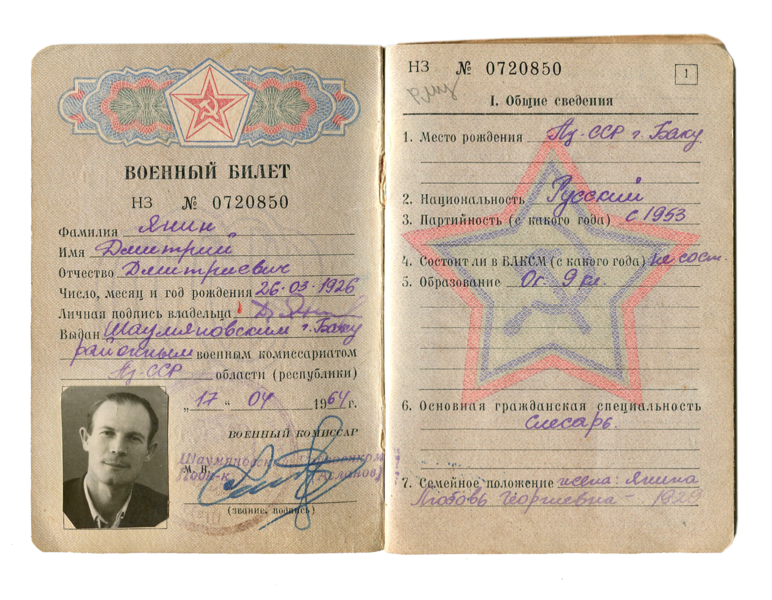 ВОЕННЫЙ БИЛЕТ
НЗ № 0720850
Фамилия Янин
Имя Дмитрий
Отчество Дмитриевич
Число, месяц и год рождения 26·03·1926
Личная подпись владельца
Выдан Шаумяновским г. Баку
районным военным комиссариатом
Аз-ССР области (республики)
„17“ 04 1964г.
ВОЕННЫЙ КОМИССАР
М. П.
(звание, подпись)
НЗ № 0720850
1
I. Общие сведения
1. Место рождения Аз-ССР г. Баку.
2. Национальность Русский
3. Партийность (с какого года) с 1953
4. Состоит ли в ВЛКСМ (с какого года) не сост.
5. Образование Ог. 9 кл.
6. Основная гражданская специальность
Слесарь.
7. Семейное положение жена: Янина
Любовь Георгиевна-